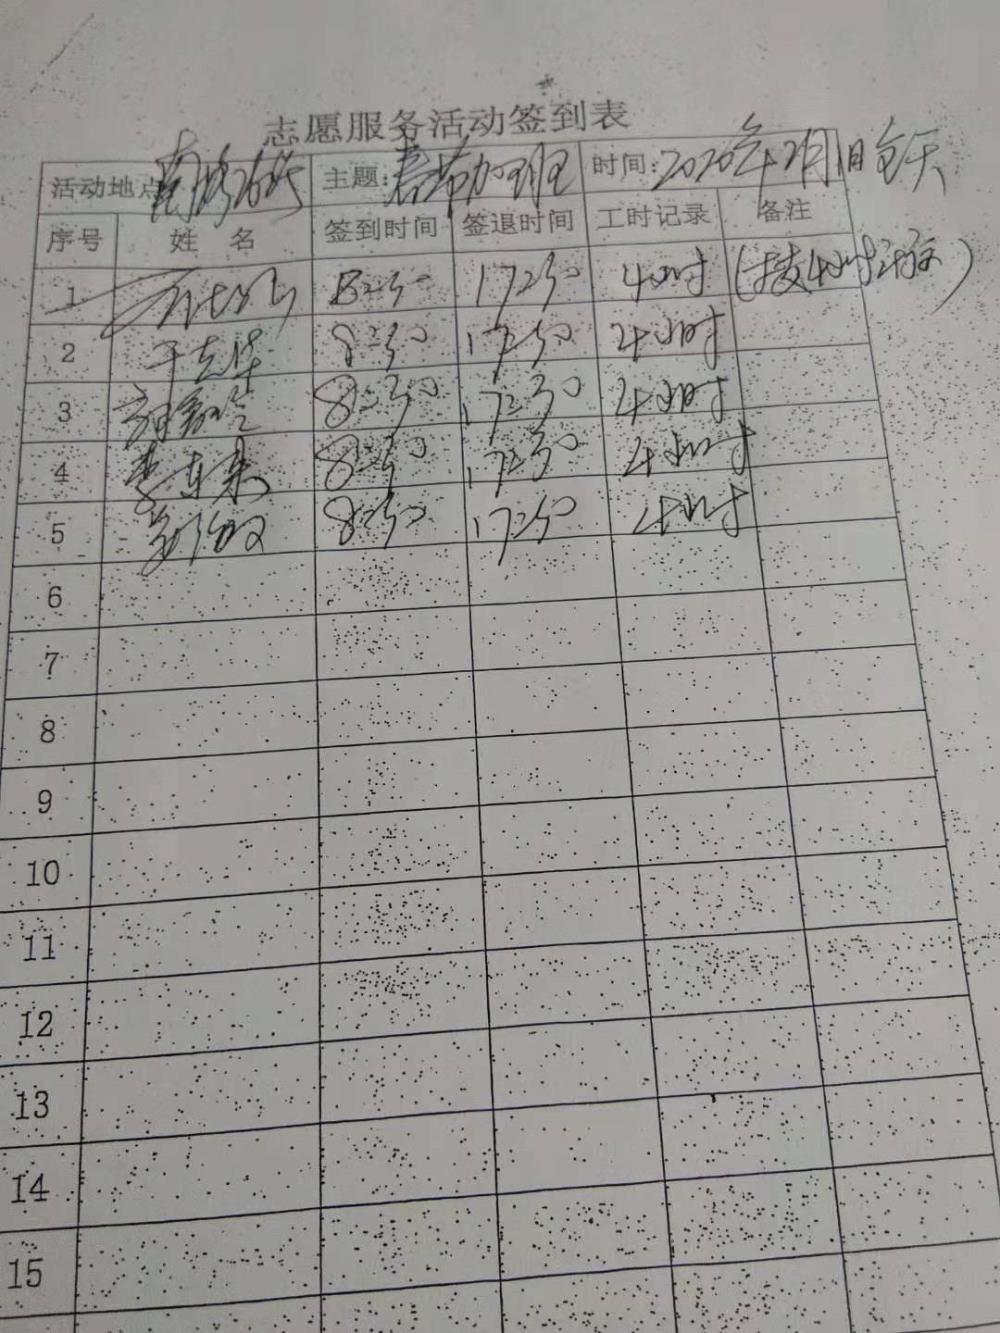 志愿服务活动签到表
活动地点 主题:春节加班 时间:2020年2月1日全天
序号 姓 名 签到时间 签退时间 工时记录 备注
1 13:30 17:30 4小时 (按4小时计算)
2 于克华 8:30 17:30 4小时
3 8:30 17:30 4小时
4 李东来 8:30 17:30 4小时
5 8:30 17:30 4小时
6
7
8
9
10
11
12
13
14
15